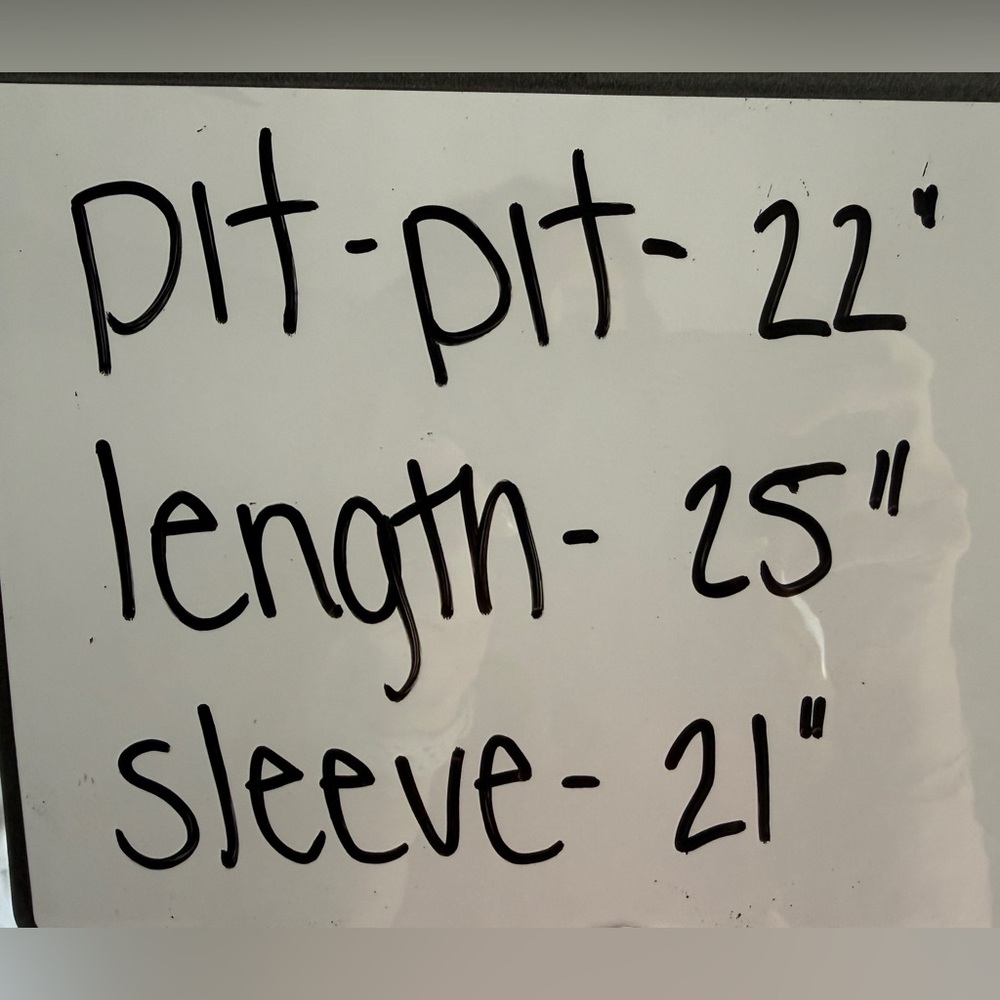 pit-pit- 22"
length- 25"
sleeve- 21"